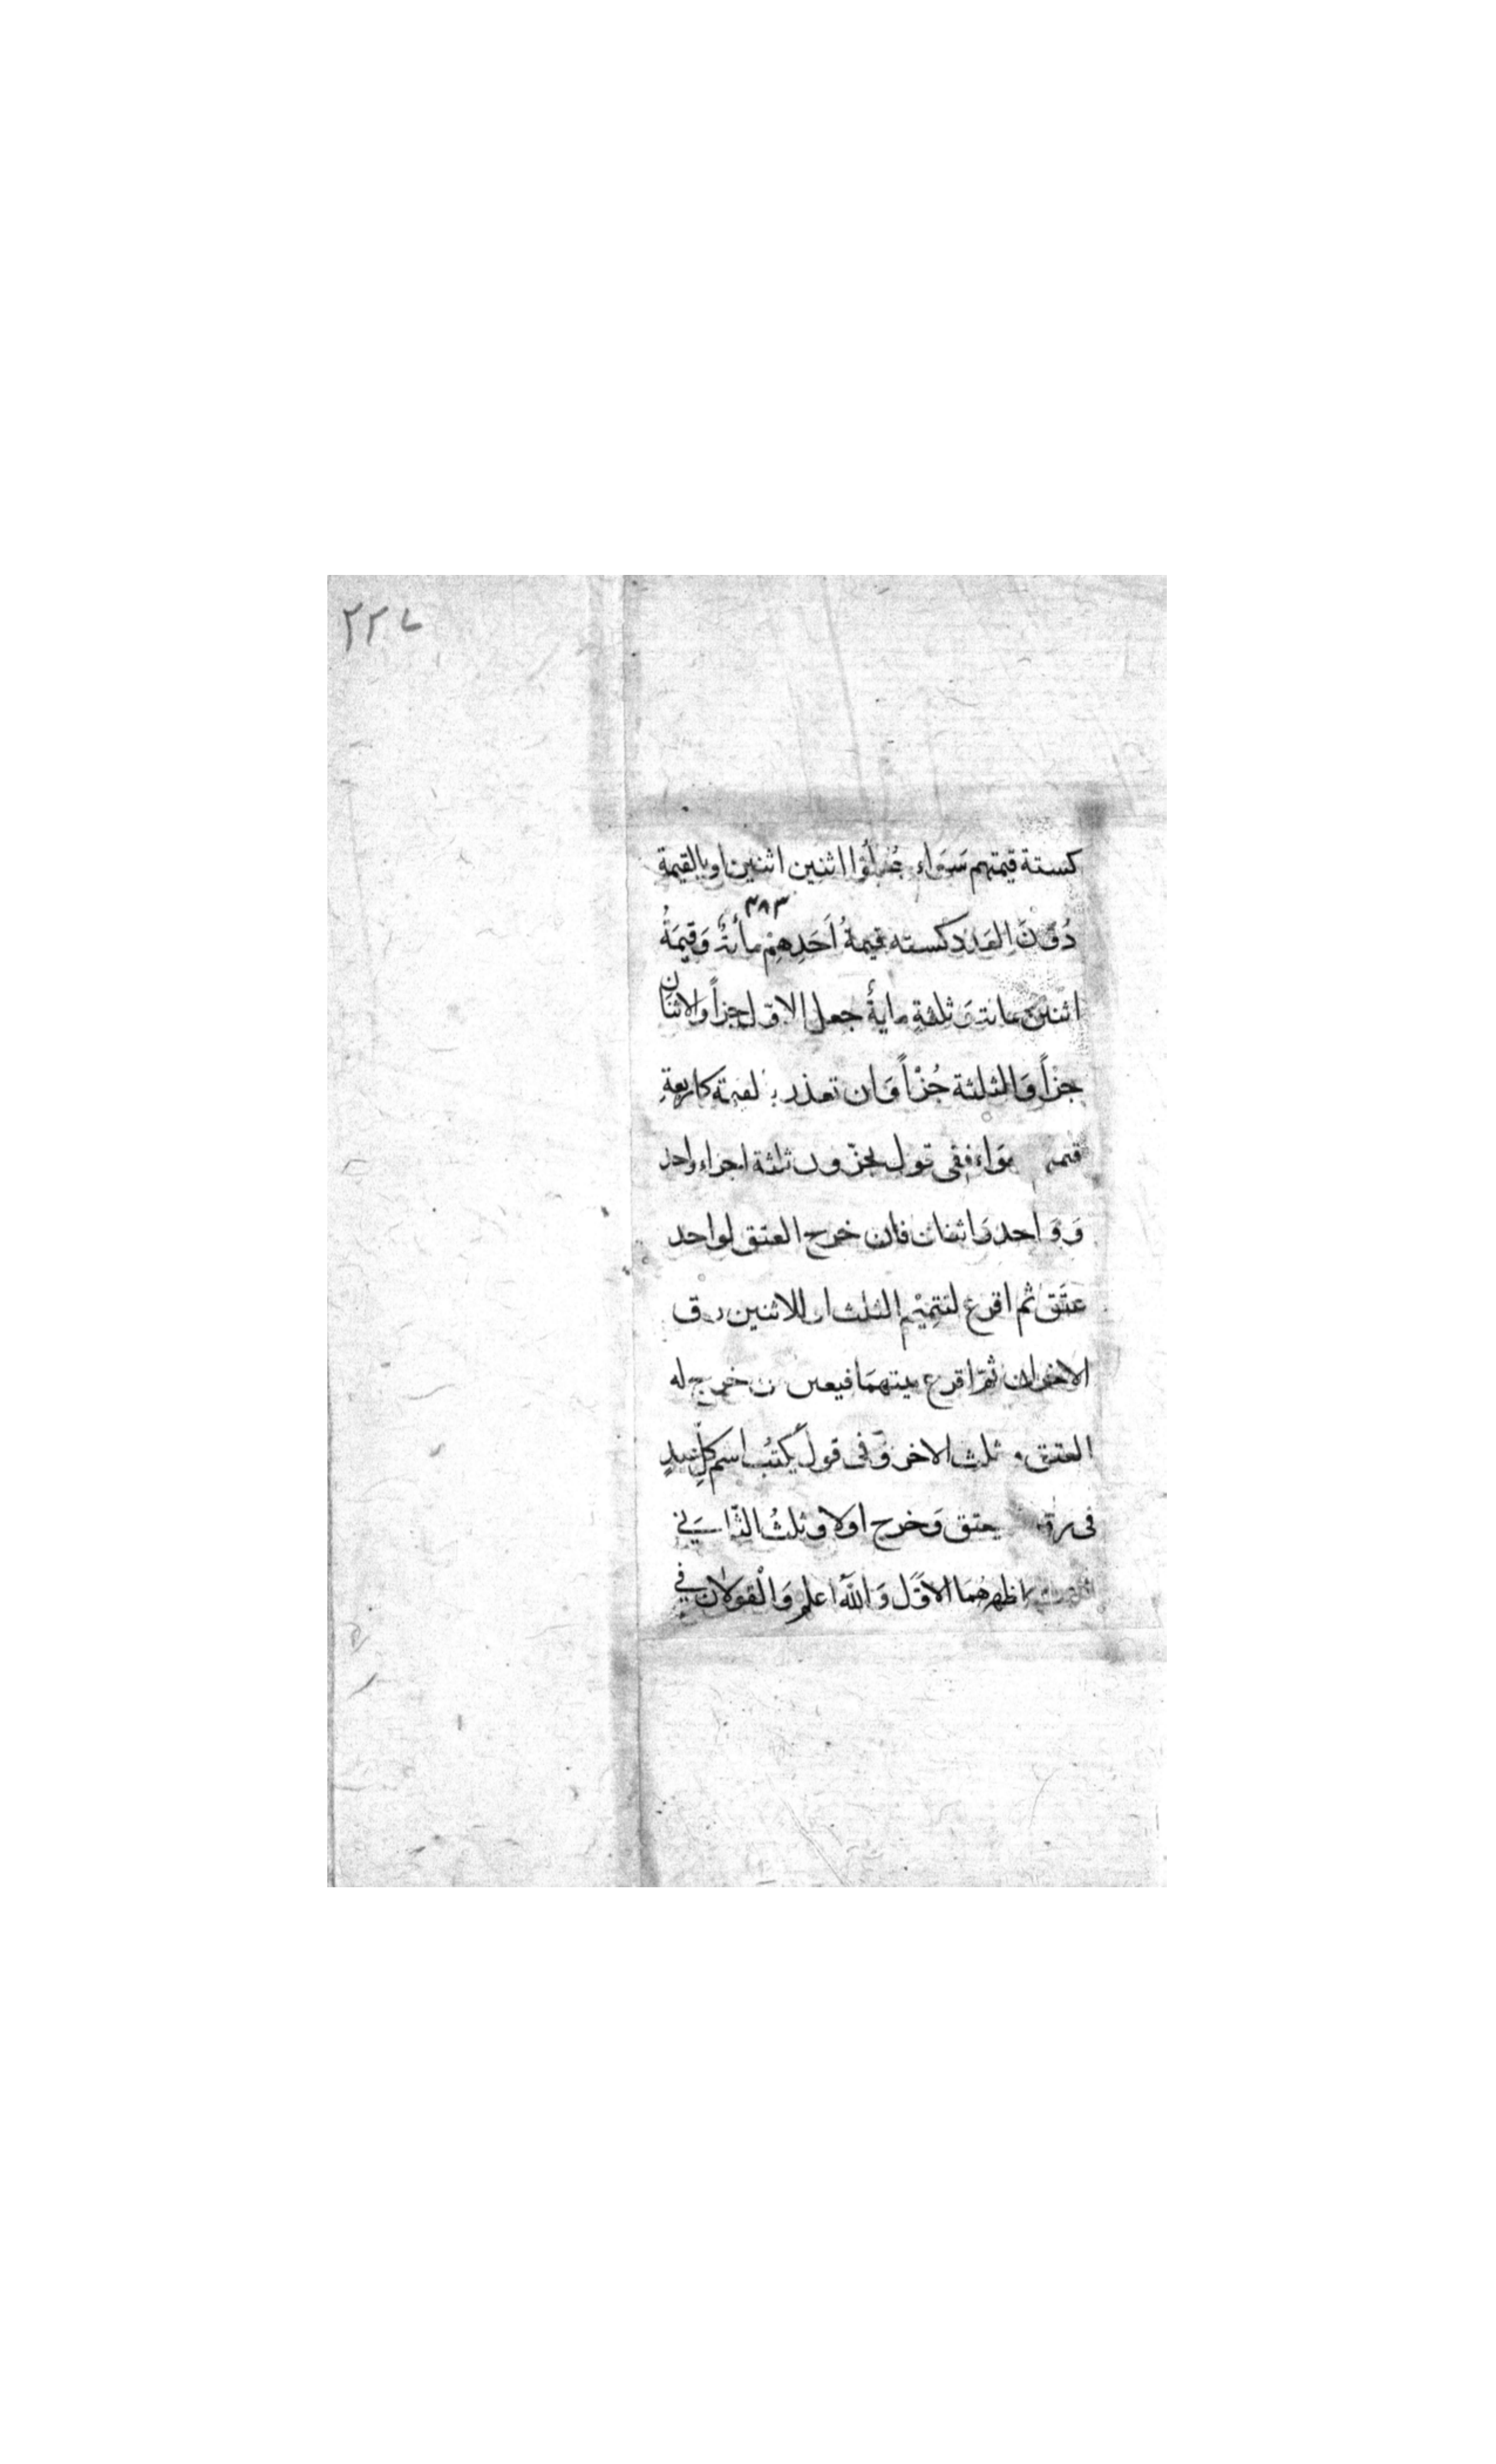 ٢٢٧
كستة قيمتهم سَوَاء جُعِلُوا اثنين اثنين او بالقيمة
٣٨٣
دُوْنَ العَدَد كستة قيمةُ اَحَدِهِمْ مأئةٌ وَقيمَةُ
اثنين مائتى وَ ثلثةٍ مايةٌ جعل الاوّل جزاً والاثنان
جزاً وَالثلثة جُزْاً وَان تعذر بالقيمة كاربعةٍ
قيمتهم سَوَاء ففى قول يجزّون ثلثة اجزاء واحد
وَوَاحد وَاثنان فان خرج العتق لواحد
عتَق ثم اقرع لتتمِيْم الثلث او للاثنين رق
الاخران ثمّ اقرع بينهمَا فيعتق من خرج له
العتق وثلث الاخر وَفى قول يُكتَبُ اسم كلِّ عبدٍ
فى رقعة يعتق وَخرج اولا وثلثُ الثّانِي
اظهرهُمَا الاوّل وَاللّٰه اعلم وَالْقولان في